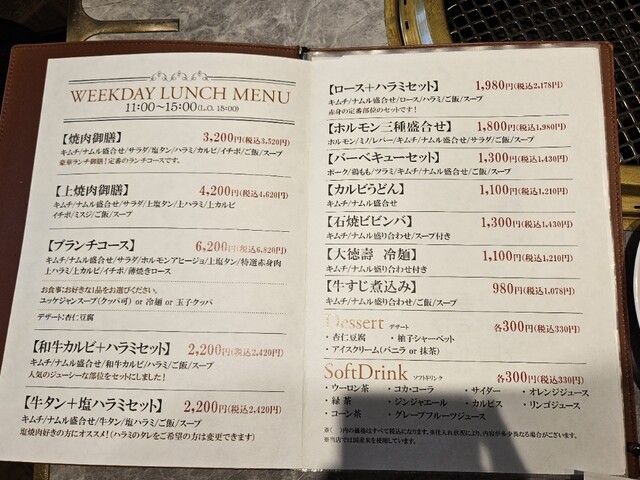 WEEKDAY LUNCH MENU
11:00〜15:00(L.O. 15:00)
【焼肉御膳】 3,200円(税込3,520円)
キムチ/ナムル盛合せ/サラダ/塩タン/ハラミ/カルビ/イチボ/ご飯/スープ
豪華ランチ御膳!定番のランチコースです。
【上焼肉御膳】 4,200円(税込4,620円)
キムチ/ナムル盛合せ/サラダ/上塩タン/上ハラミ/上カルビ
イチボ/ミスジ/ご飯/スープ
【ブランチコース】 6,200円(税込6,820円)
キムチ/ナムル盛合せ/サラダ/ホルモンアヒージョ/上塩タン/特選赤身肉
上ハラミ/上カルビ/イチボ/薄焼きロース
お食事:お好きな1品をお選びください。
ユッケジャンスープ(クッパ可) or 冷麺 or 玉子クッパ
デザート:杏仁豆腐
【和牛カルビ+ハラミセット】 2,200円(税込2,420円)
キムチ/ナムル盛合せ/和牛カルビ/ハラミ/ご飯/スープ
人気のジューシーな部位をセットにしました!
【牛タン+塩ハラミセット】 2,200円(税込2,420円)
キムチ/ナムル盛合せ/牛タン/塩ハラミ/ご飯/スープ
塩焼肉好きの方にオススメ!(ハラミのタレをご希望の方は変更できます)
【ロース+ハラミセット】 1,980円(税込2,178円)
キムチ/ナムル盛合せ/ロース/ハラミ/ご飯/スープ
赤身の定番部位のセットです!
【ホルモン三種盛合せ】 1,800円(税込1,980円)
ホルモン/ミノ/レバー/キムチ/ナムル盛合せ/サラダ/ご飯/スープ
【バーベキューセット】 1,300円(税込1,430円)
ポーク/鶏もも/ツラミ/キムチ/ナムル盛合せ/ご飯/スープ
【カルビうどん】 1,100円(税込1,210円)
キムチ/ナムル盛合せ
【石焼ビビンバ】 1,300円(税込1,430円)
キムチ/ナムル盛り合わせ/スープ付き
【大徳壽 冷麺】 1,100円(税込1,210円)
キムチ/ナムル盛り合わせ付き
【牛すじ煮込み】 980円(税込1,078円)
キムチ/ナムル盛り合わせ/ご飯/スープ
Dessert デザート 各300円(税込330円)
・杏仁豆腐 ・柚子シャーベット
・アイスクリーム(バニラ or 抹茶)
SoftDrink ソフトドリンク 各300円(税込330円)
・ウーロン茶 ・コカ・コーラ ・サイダー ・オレンジジュース
・緑茶 ・ジンジャエール ・カルピス ・リンゴジュース
・コーン茶 ・グレープフルーツジュース
※( )内の価格はすべて税込になります。※仕入れ状況により、内容が多少異なる場合がございます。
※当店では国産米を使用しています。